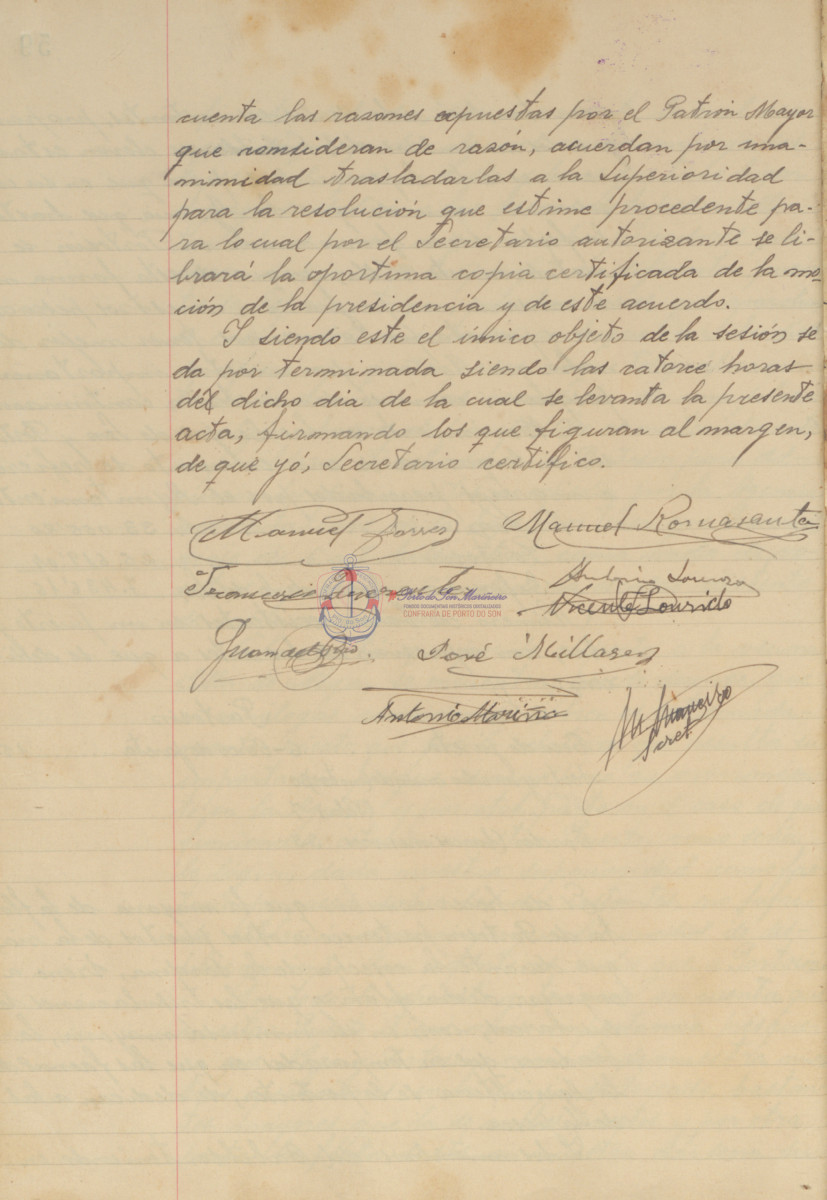 cuenta las razones expuestas por el Patrón Mayor
que consideran de razón, acuerdan por una-
nimidad trasladarlas a la Superioridad
para la resolución que estime procedente pa-
ra lo cual por el Secretario autorizante se li-
brará la oportuna copia certificada de la mo-
ción de la presidencia y de este acuerdo.
Y siendo este el único objeto de la sesión se
da por terminada siendo las catorce horas
del dicho dia de la cual se levanta la presente
acta, firmando los que figuran al margen,
de que yó, Secretario certifico.
Manuel Torres Manuel Romasanta
Francisco Antonio
Vicente Lourido
Porto do Son Mariñeiro
FONDOS DOCUMENTAIS HISTÓRICOS DIXITALIZADOS
CONFRARÍA DE PORTO DO SON
Juan del Rio. José Millares
Antonio Mariño
Secret